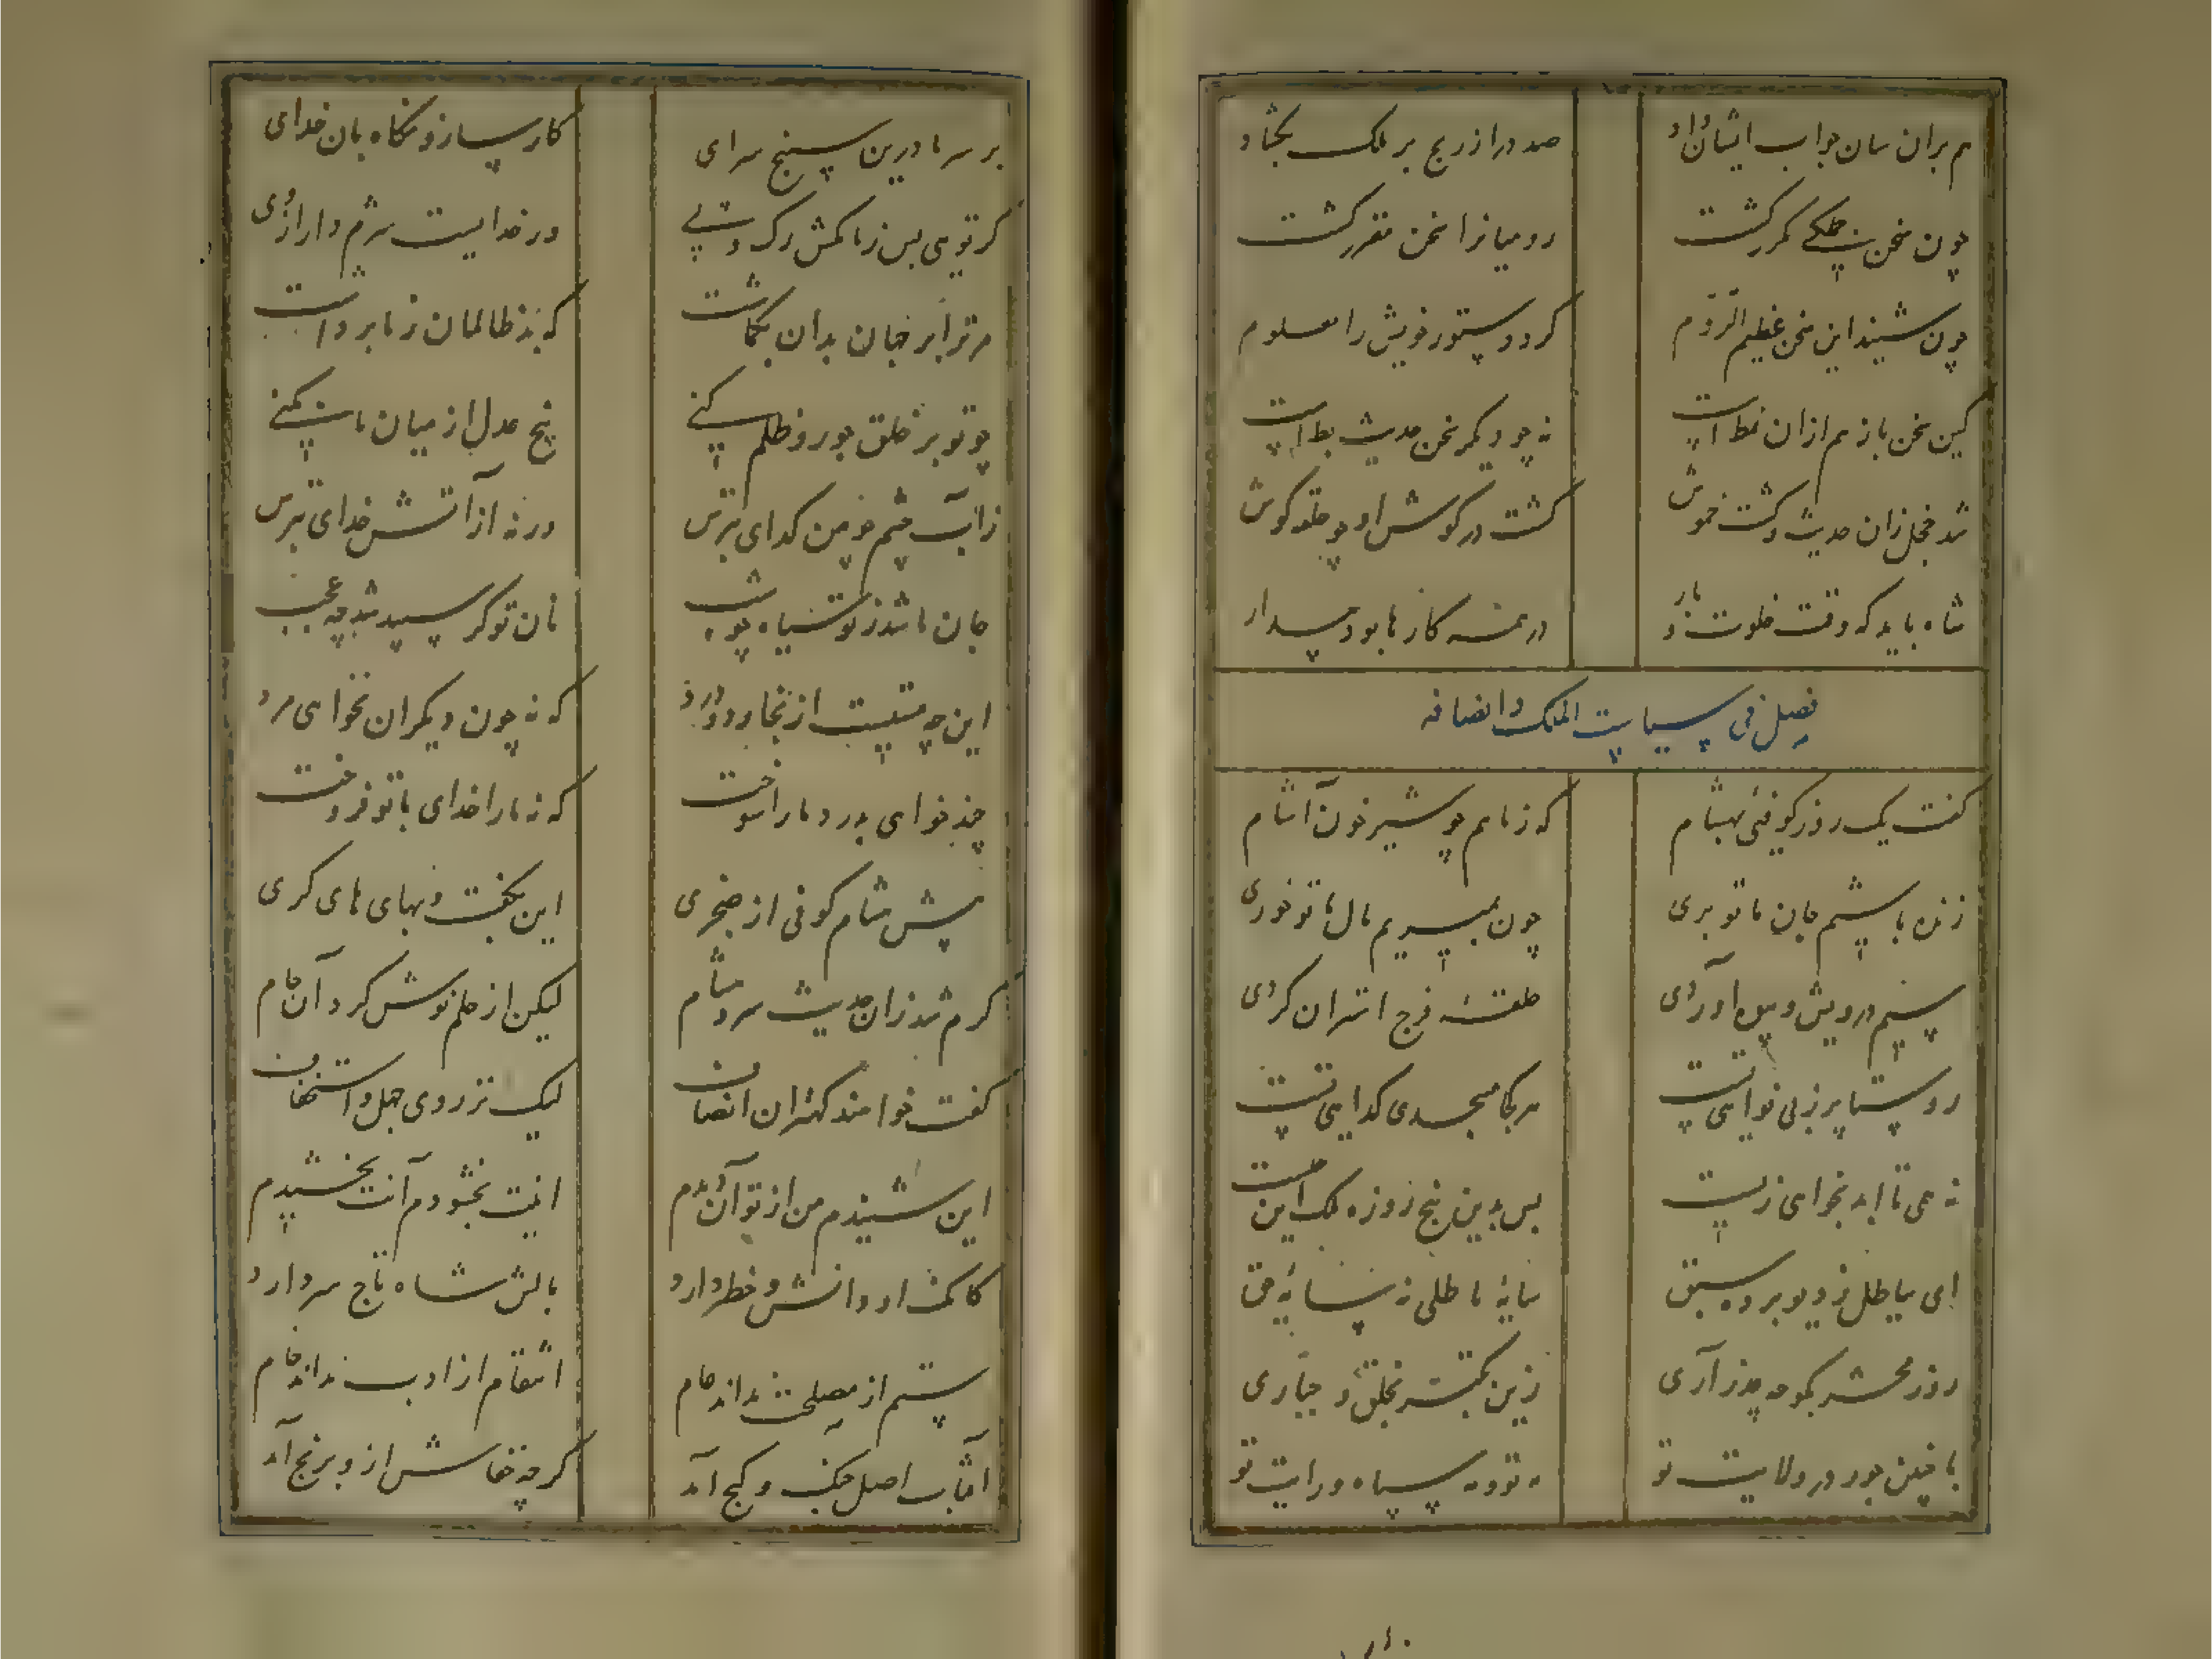 هم بران سان جواب ایشان داد
صد در از رنج بر ملک بگشاد
چون سخن یکی مکرر گشت
رومیانرا سخن مقرر گشت
چون شنید این سخن عظیم الروم
کرد دستور خویش را معلوم
کین سخن باز هم از آن نمط است
نه چو دیگر سخن حدیث بط است
شد خجل زان حدیث و گشت خموش
گشت در گوش او چو حلقه گوش
شاه باید که وقت خلوت و بار
در همه کارها بود بیدار
فصل فی سیاست الملک و انصافه
گفت یک روز کوفئی بهشام
که ز ما هم چو شیر خون آشام
زنده باشیم جان ما تو بری
چون بمیریم مال ما تو خوری
یتیم درویش و بیوه آوردی
حلقه فرج استران کردی
روستا پر ز بی نوایی تست
هر کجا مسجدی گدایی تست
نه همی تا ابد بخواهی زیست
بس بدین پنج روزه ملک این چیست
ای بباطل ز دیو برده سبق
سایه باطلی نه سایه حق
روز محشر بگو چه عذر آری
زین تکبر بخلق و جباری
با چنین جور در ولایت تو
مه تو و مه سپاه و رایت تو
بر سر ما درین سپنج سرای
کارساز و نگاه بان خدای
گر تویی بس ز ما مکش رگ و پی
ور خدایست شرم دار از وی
مر ترا بر جهان بدان بگماشت
که بد ظالمان ز ما برداشت
چو تو بر خلق جور و ظلم کنی
بیخ عدل از میان ما بکنی
ز آب چشم چو من گدای بترس
ور نه از آتش خدای بترس
جان ما شد ز تو سیاه چو شب
نان تو گر سپید شد چه عجب
این چه مستیست از تجاور و درد
که نه چون دیگران نخواهی مرد
چند خواهی بدرد ما را سوخت
که نه ما را خدای با تو فروخت
پیش هشام کوفی از ضجری
این بگفت و بهای های گری
گرم شد زان حدیث سرد هشام
لیکن از حلم نوش کرد آن جام
گفت خواهند کهتران انصاف
لیک نز روی جهل و استخفاف
این شنیدم من از تو آن دیدم
اینت بخشودم آنت بخشیدم
کانکه او دانش و خطر دارد
بالش شاه تاج سر دارد
ستم از مصلحت نداند عام
انتقام از ادب نداند خام
آفتاب اصل جنگ و گنج آمد
گرچه خفاش ازو برنج آمد